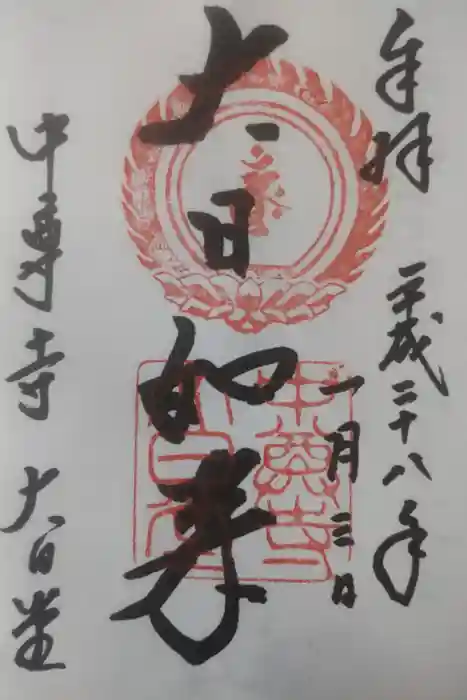 奉拝
平成二十八年
一月三日
大日如来
中尊寺 大日堂